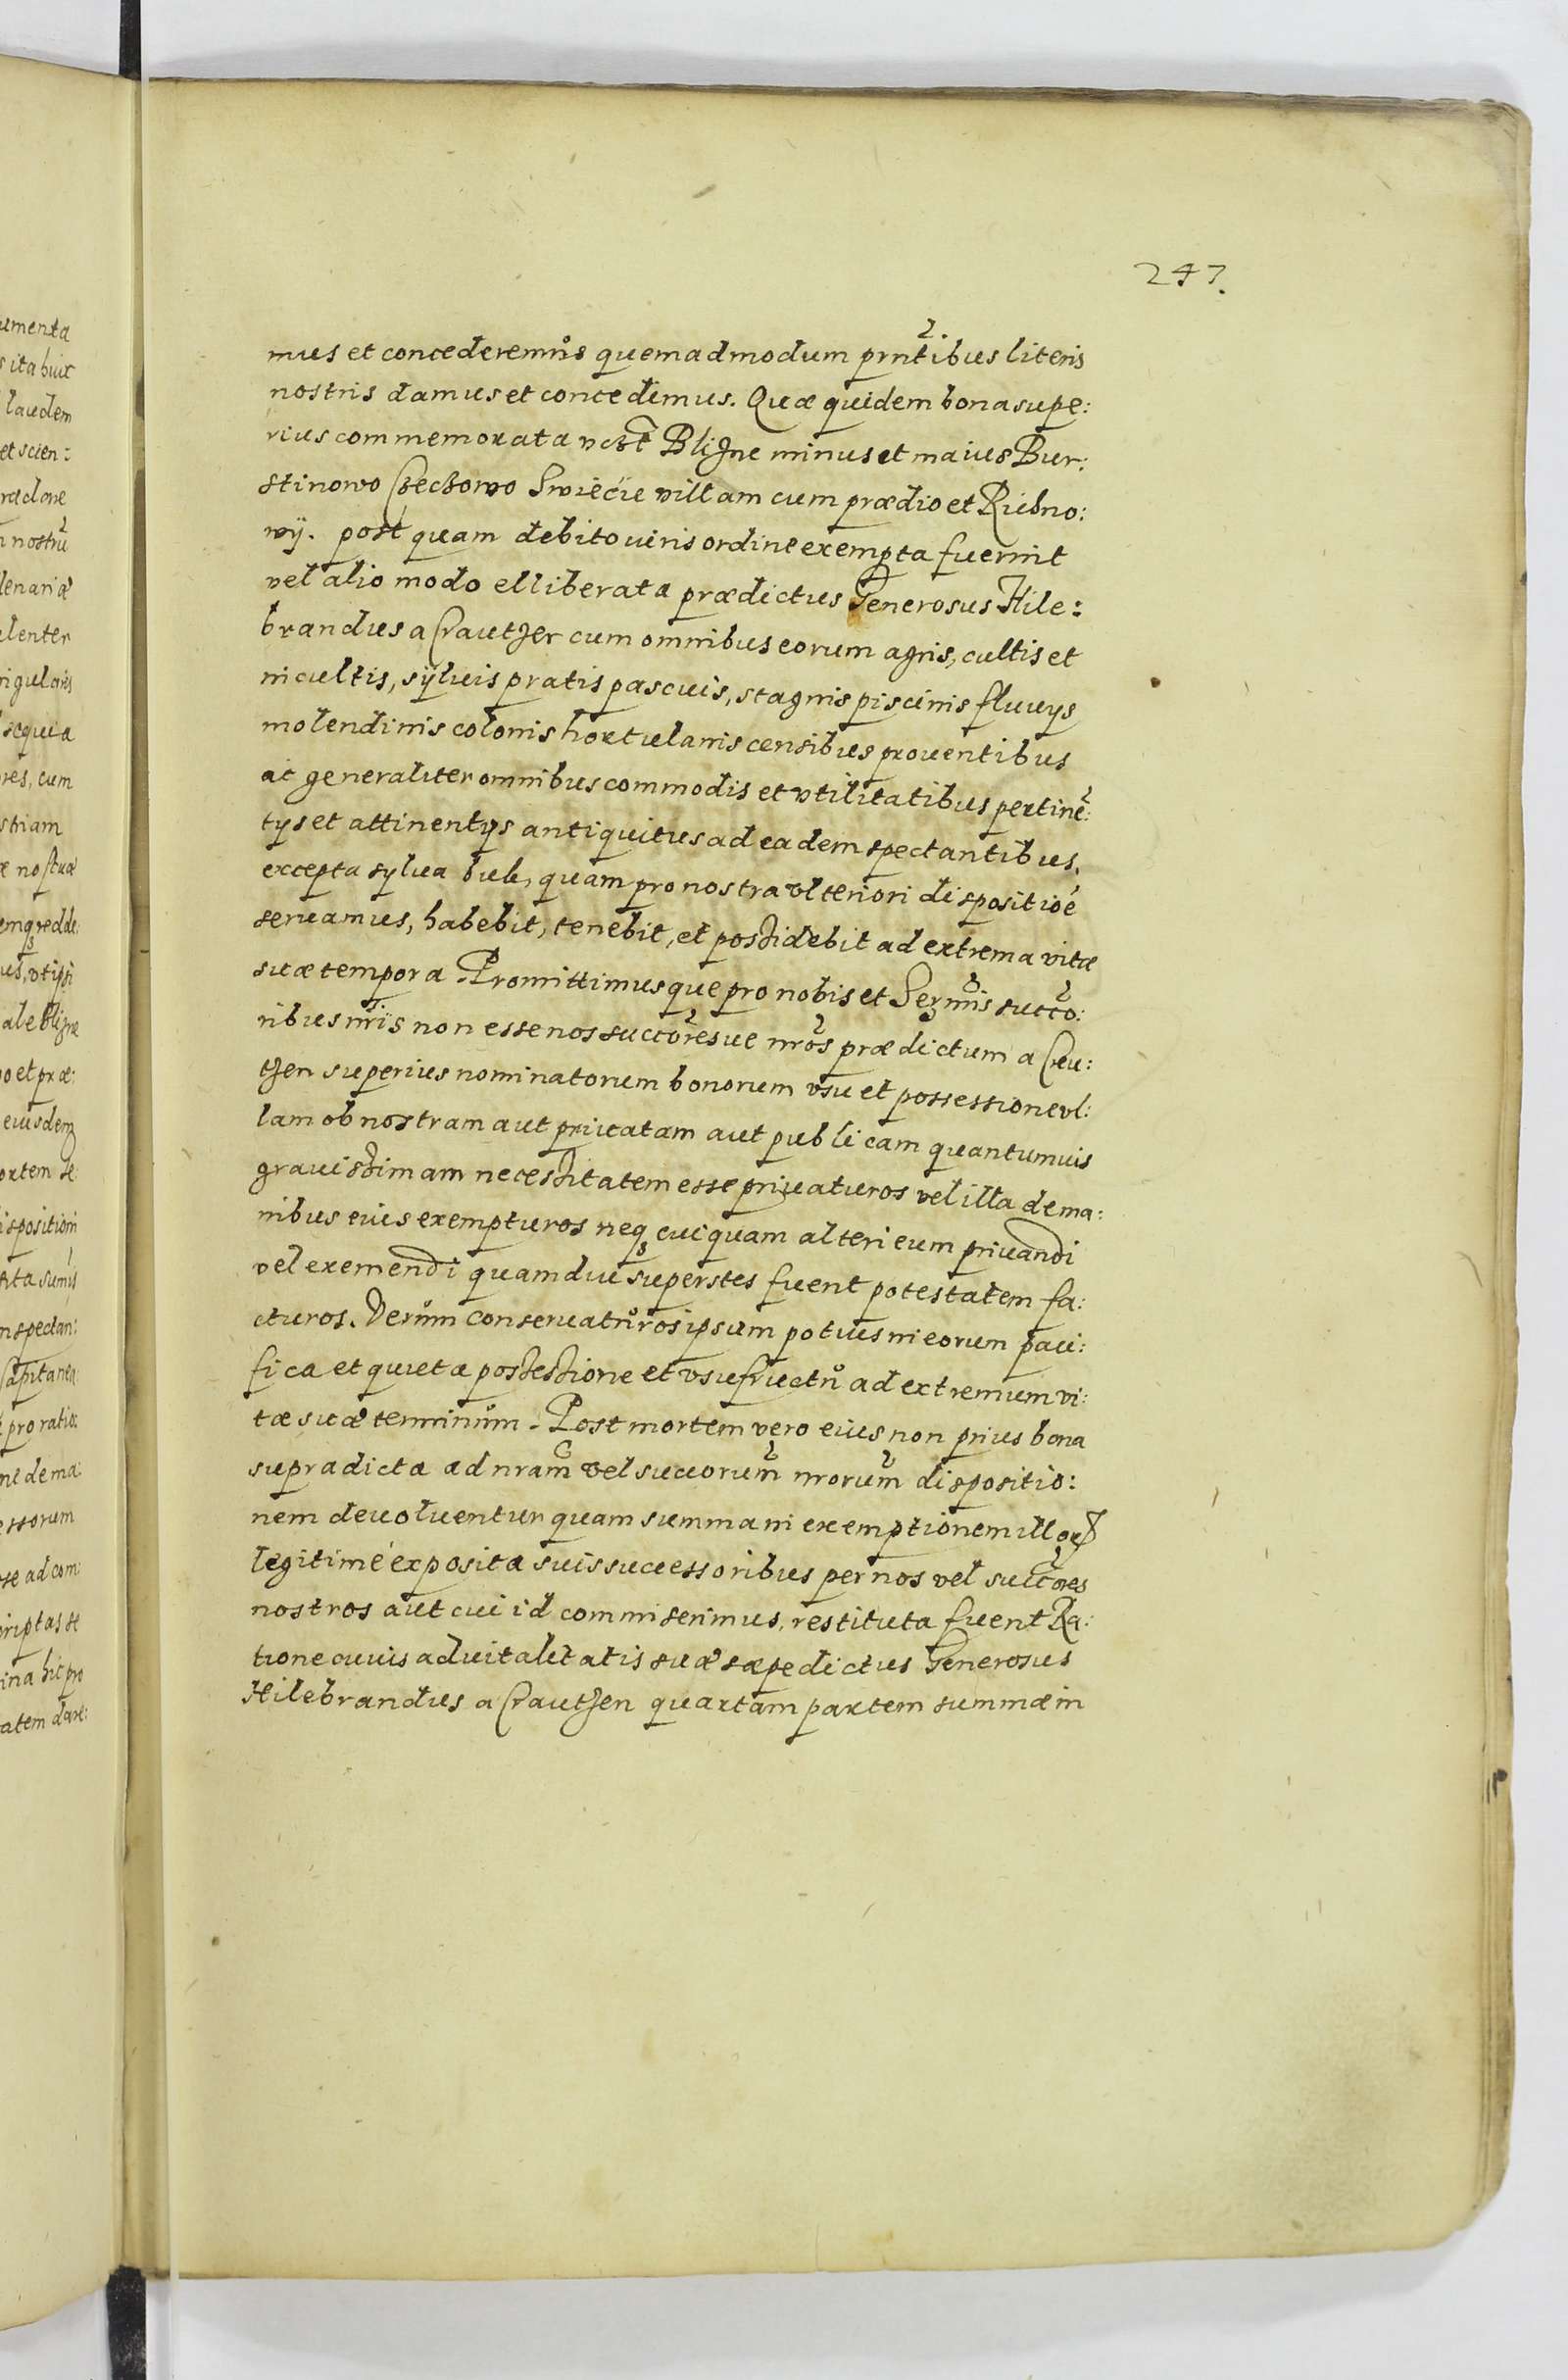 247.
mus et concederemus quemadmodum prntibus literis
nostris damus et concedimus. Quæ quidem bona supe:
rius commemorata Blizne minus et maius Bur:
stinowo Czeczowo Swiecie villam cum prædio et Richno:
wÿ. post quam debito uiris ordine exempta fuerint
vel alio modo elliberata prædictus Generosus Hile:
brandus a Crautzer cum omnibus eorum agris, cultis et
incultis, sÿluis pratis pascuis, stagnis piscinis fluuijs
molendinis colonis hortulanis censibus prouentibus
ac generaliter omnibus commodis et vtilitatibus pertine:
tijs et attinentijs antiquitus ad eadem spectantibus.
excepta sylua bule, quam pro nostra vlteriori dispositioe
seruamus, habebit, tenebit, et possidebit ad extrema vitæ
suæ tempora. Promittimusque pro nobis et Sermis succo:
ribus nriis non esse nos succoresue nros prædictum a Creu:
tzen superius nominatorum bonorum vsu et possessione vl:
lam ob nostram aut priuatam aut publicam quantumuis
grauissimam necessitatem esse priuaturos vel illa de ma:
nibus eius exempturos neq cuiquam alteri eum priuandi
vel exemendi quamdiu superstes fuerit potestatem fa:
cturos. Verum conseruaturos ipsum potius in eorum paci:
fica et quieta possessione et vsufructu ad extremum vi:
tæ suæ terminum. Post mortem vero eius non prius bona
supradicta ad nram vel succorum nrorum dispositio:
nem deuoluentur quam summa in exemptionem illor
legitimé exposita suis successoribus per nos vel succores
nostros aut cui id commiserimus, restituta fuerit Ra:
tione cuius aduitalitatis suæ sæpedictus Generosus
Hilebrandus a Crautzen quartam partem summæ in